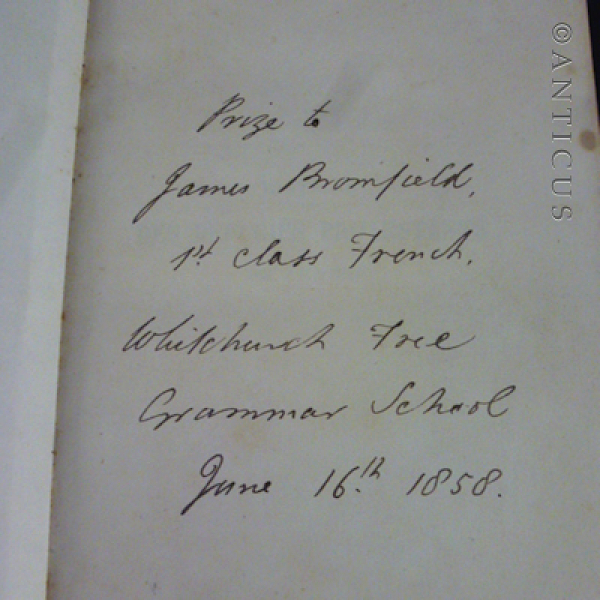 Prize to
James Bromfield,
1st class French,
Whitchurch Free
Grammar School
June 16.th 1858.
©ANTICUS